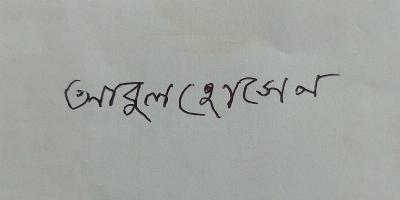 আবুল হোসেন